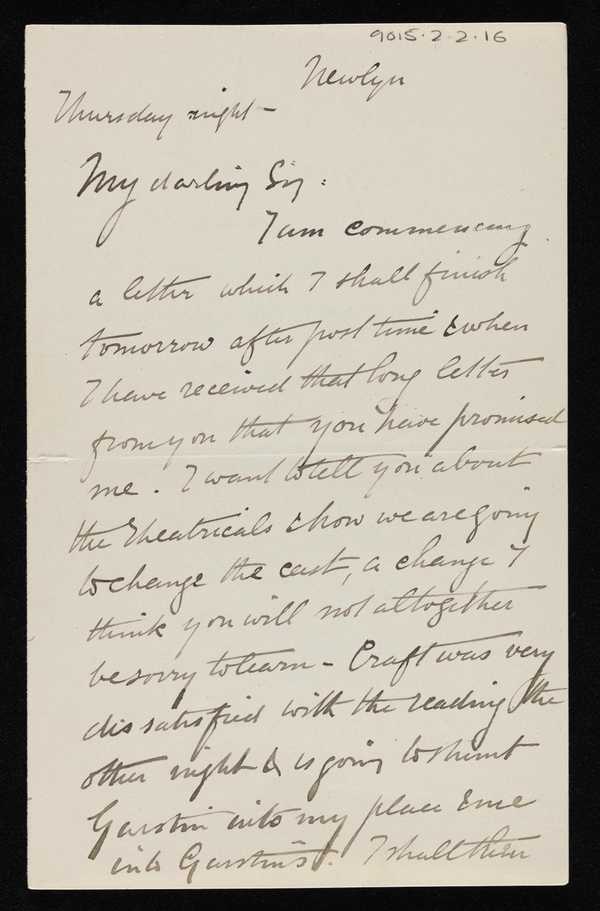 9015.2.2.16
Newlyn
Thursday night –
My darling Sig:
I am commencing
a letter which I shall finish
tomorrow after post time & when
I have received that long letter
from you that you have promised
me. I want to tell you about
the Theatricals & how we are going
to change the cast, a change I
think you will not altogether
be sorry to learn – Craft was very
dissatisfied with the reading the
other night & is going to shunt
Garstin into my place & me
into Garstin's. I shall then